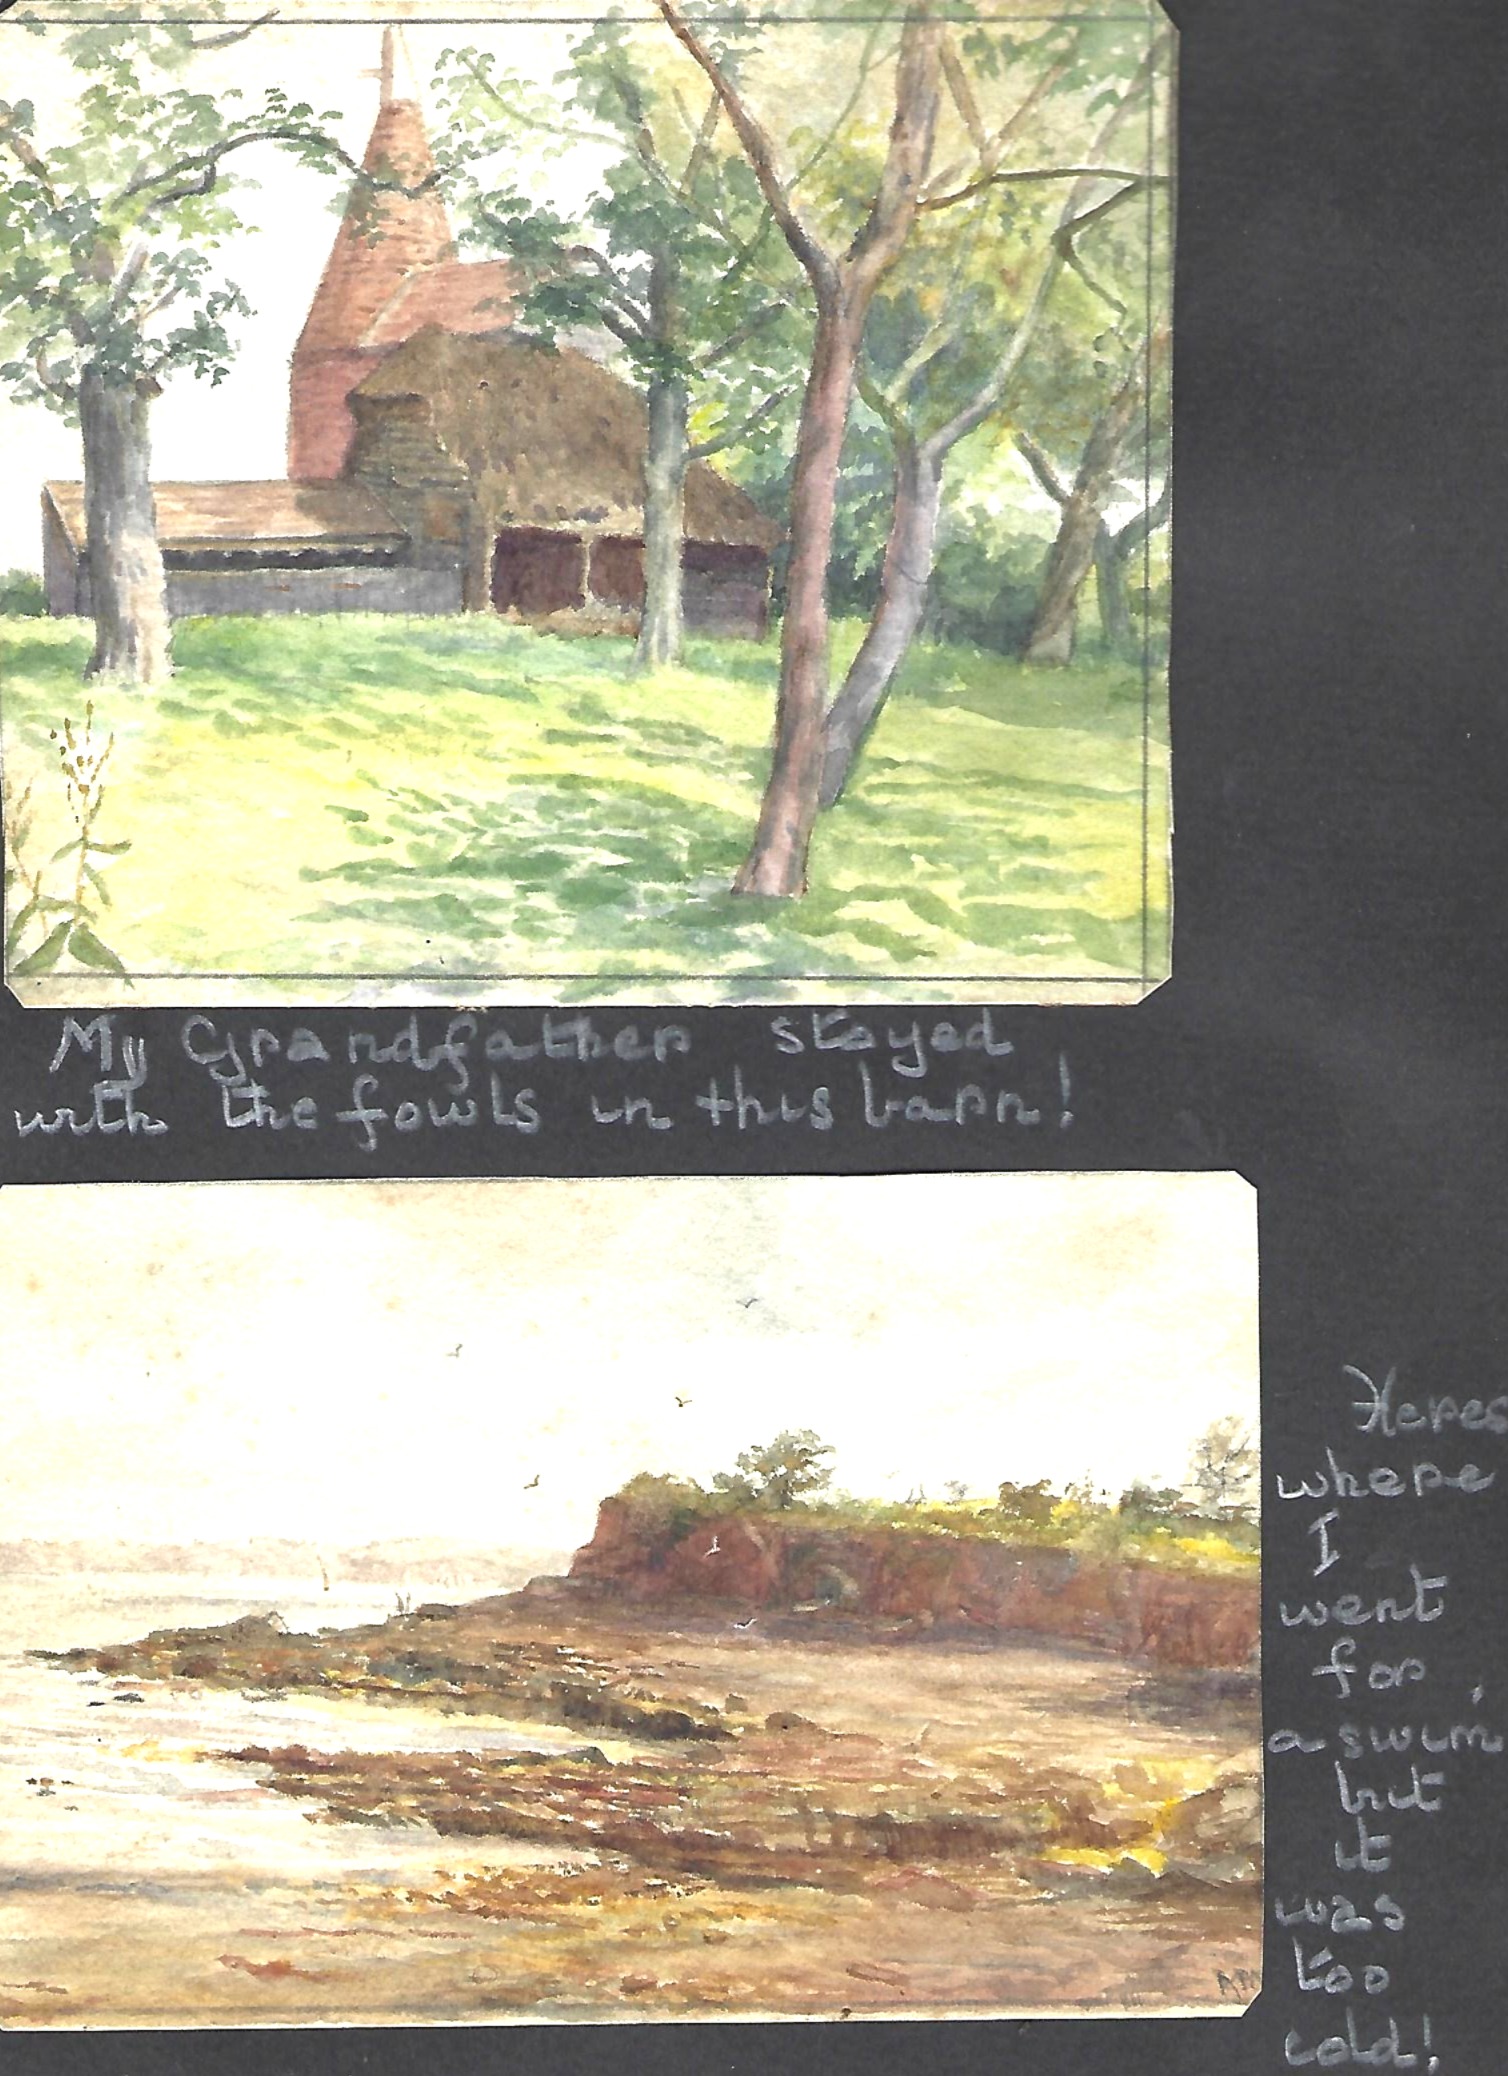 My Grandfather stayed
with the fowls in this barn!
Heres
where
I
went
for
a swim,
but
it
was
too
cold!